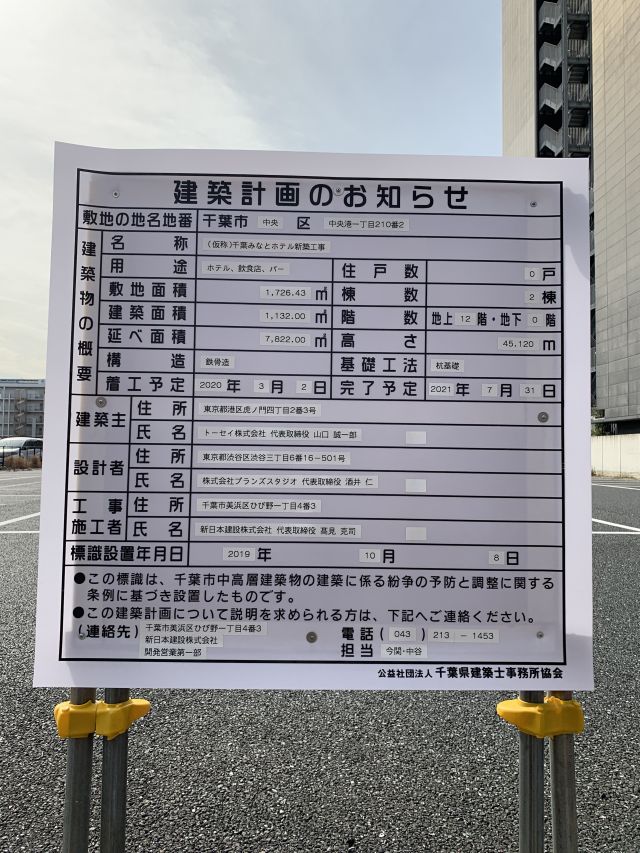 建築計画のお知らせ
敷地の地名地番 千葉市 中央 区 中央港一丁目210番2
建築物の概要
名称 (仮称)千葉みなとホテル新築工事
用途 ホテル、飲食店、バー 住戸数 0 戸
敷地面積 1,726.43 ㎡ 棟数 2 棟
建築面積 1,132.00 ㎡ 階数 地上 12 階・地下 0 階
延べ面積 7,822.00 ㎡ 高さ 45.120 m
構造 鉄骨造 基礎工法 杭基礎
着工予定 2020 年 3 月 2 日 完了予定 2021 年 7 月 31 日
建築主 住所 東京都港区虎ノ門四丁目2番3号
氏名 トーセイ株式会社 代表取締役 山口 誠一郎
設計者 住所 東京都渋谷区渋谷三丁目6番16-501号
氏名 株式会社プランズスタジオ 代表取締役 酒井 仁
工事施工者 住所 千葉市美浜区ひび野一丁目4番3
氏名 新日本建設株式会社 代表取締役 髙見 克司
標識設置年月日 2019 年 10 月 8 日
●この標識は、千葉市中高層建築物の建築に係る紛争の予防と調整に関する
条例に基づき設置したものです。
●この建築計画について説明を求められる方は、下記へご連絡ください。
(連絡先) 千葉市美浜区ひび野一丁目4番3
新日本建設株式会社 電話(043)213-1453
開発営業第一部 担当 今関・中谷
公益社団法人 千葉県建築士事務所協会